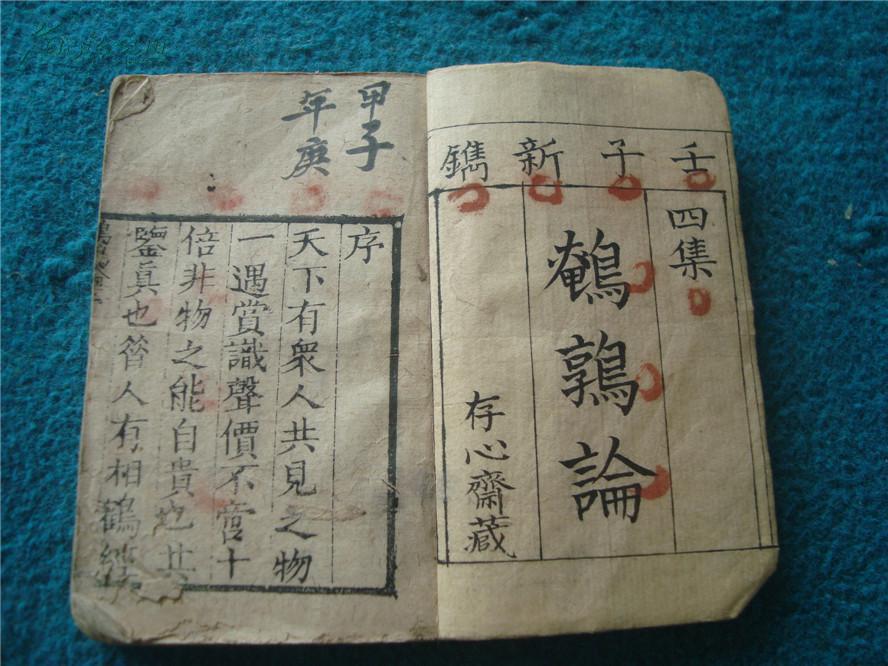 壬子新鐫
四集
鵪鶉論
存心齋藏
甲子
年庚
序
天下有衆人共見之物
一遇賞識聲價不啻十
倍非物之能自貴也其
鑒真也昝人有相鶴經